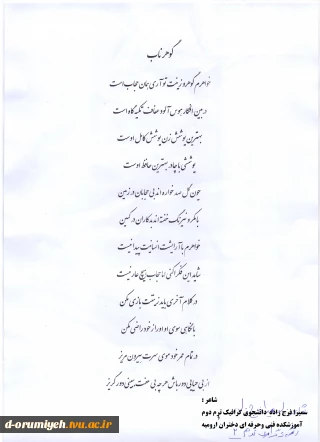 گوهر ناب
خواهرم گوهر و زینت تو آری همان حجاب است
در بین افکار هوس آلود عفاف تکیه گاه است
بهترین پوشش زن پوشش کامل اوست
پوششی با چادر بهترین حافظ اوست
چون گل صد خواره اند بی حجابان در زمین
با مکر و نیرنگ خفته اند بدکاران در کمین
خواهرم با آرایشت انسانیت پیدا نیست
شاید این فکر کنی اما حجاب هیچ عار نیست
در کلام آخری باید زینتت بازی مکن
با نگاهی سوی او او را از خود راضی مکن
در تمام عمر خود سوی سرت بیرون مریز
از بی حیایی دور باش هر چه بی عفت یعنی دور گریز
شاعر :
سمیرا فرج زاده دانشجوی گرافیک ترم دوم
آموزشکده فنی وحرفه ای دختران ارومیه
d-orumiyeh.tvu.ac.ir